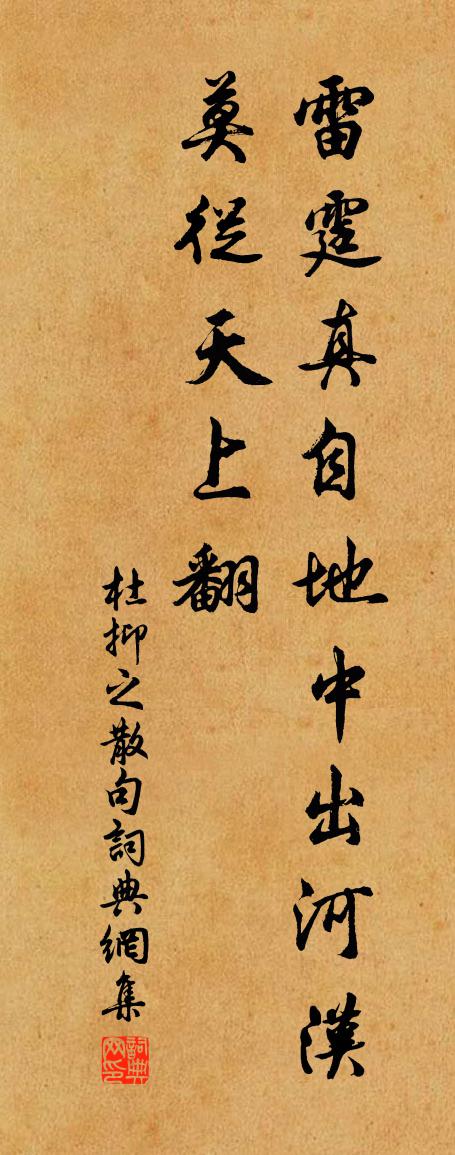 雷霆真自地中出河漢
莫從天上翻
杜抑之散句詞典網集
詞典网印